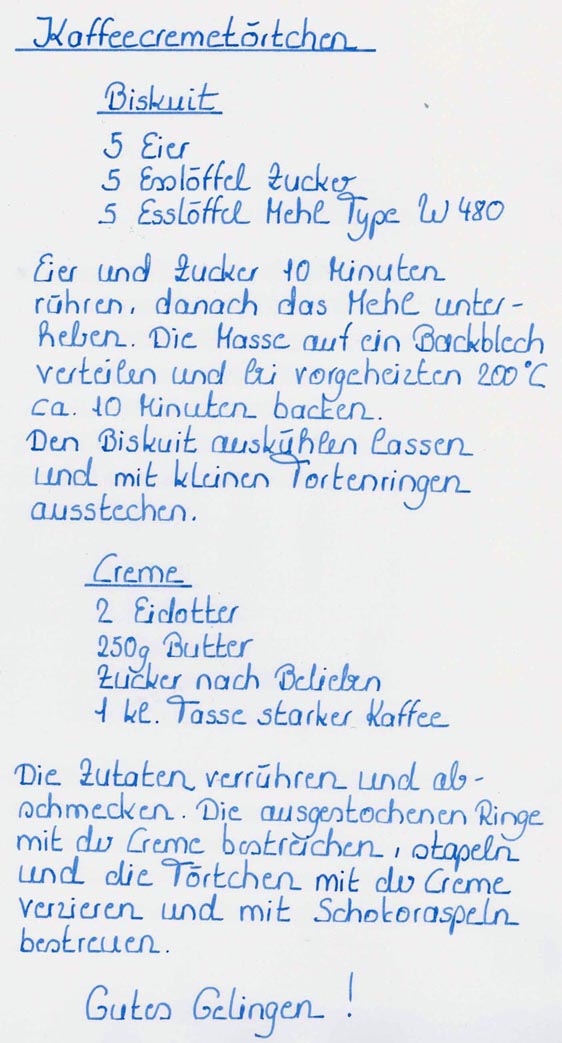 Kaffeecremetörtchen
Biskuit
5 Eier
5 Esslöffel Zucker
5 Esslöffel Mehl Type W 480
Eier und Zucker 10 Minuten
rühren, danach das Mehl unter-
heben. Die Masse auf ein Backblech
verteilen und bei vorgeheizten 200°C
ca. 10 Minuten backen.
Den Biskuit auskühlen lassen
und mit kleinen Tortenringen
ausstechen.
Creme
2 Eidotter
250g Butter
Zucker nach Belieben
1 kl. Tasse starker Kaffee
Die Zutaten verrühren und ab-
schmecken. Die ausgestochenen Ringe
mit der Creme bestreichen, stapeln
und die Törtchen mit der Creme
verzieren und mit Schokoraspeln
bestreuen.
Gutes Gelingen!